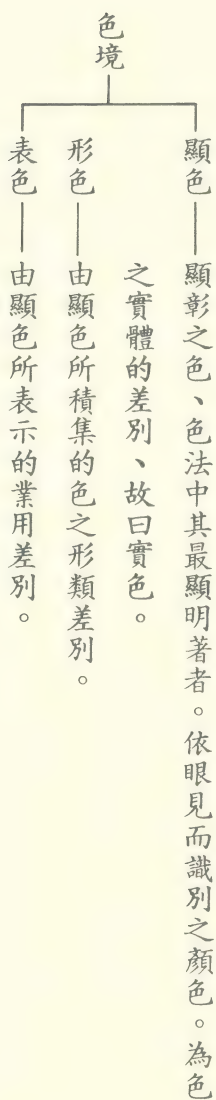 色境
顯色——顯彰之色、色法中其最顯明著者。依眼見而識別之顏色。為色
之實體的差別、故曰實色。
形色——由顯色所積集的色之形類差別。
表色——由顯色所表示的業用差別。